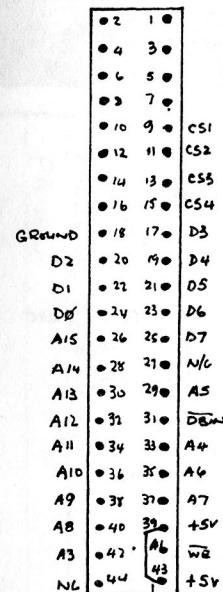 2 1
4 3
6 5
8 7
10 9 CS1
12 11 CS2
14 13 CS3
16 15 CS4
GROUND 18 17 D3
D2 20 19 D4
D1 22 21 D5
DØ 24 23 D6
A15 26 25 D7
A14 28 27 N/C
A13 30 29 A5
A12 32 31 DBIN
A11 34 33 A4
A10 36 35 A6
A9 38 37 A7
A8 40 39 +5V
A3 42 A6 WE
NC 44 43 +5V